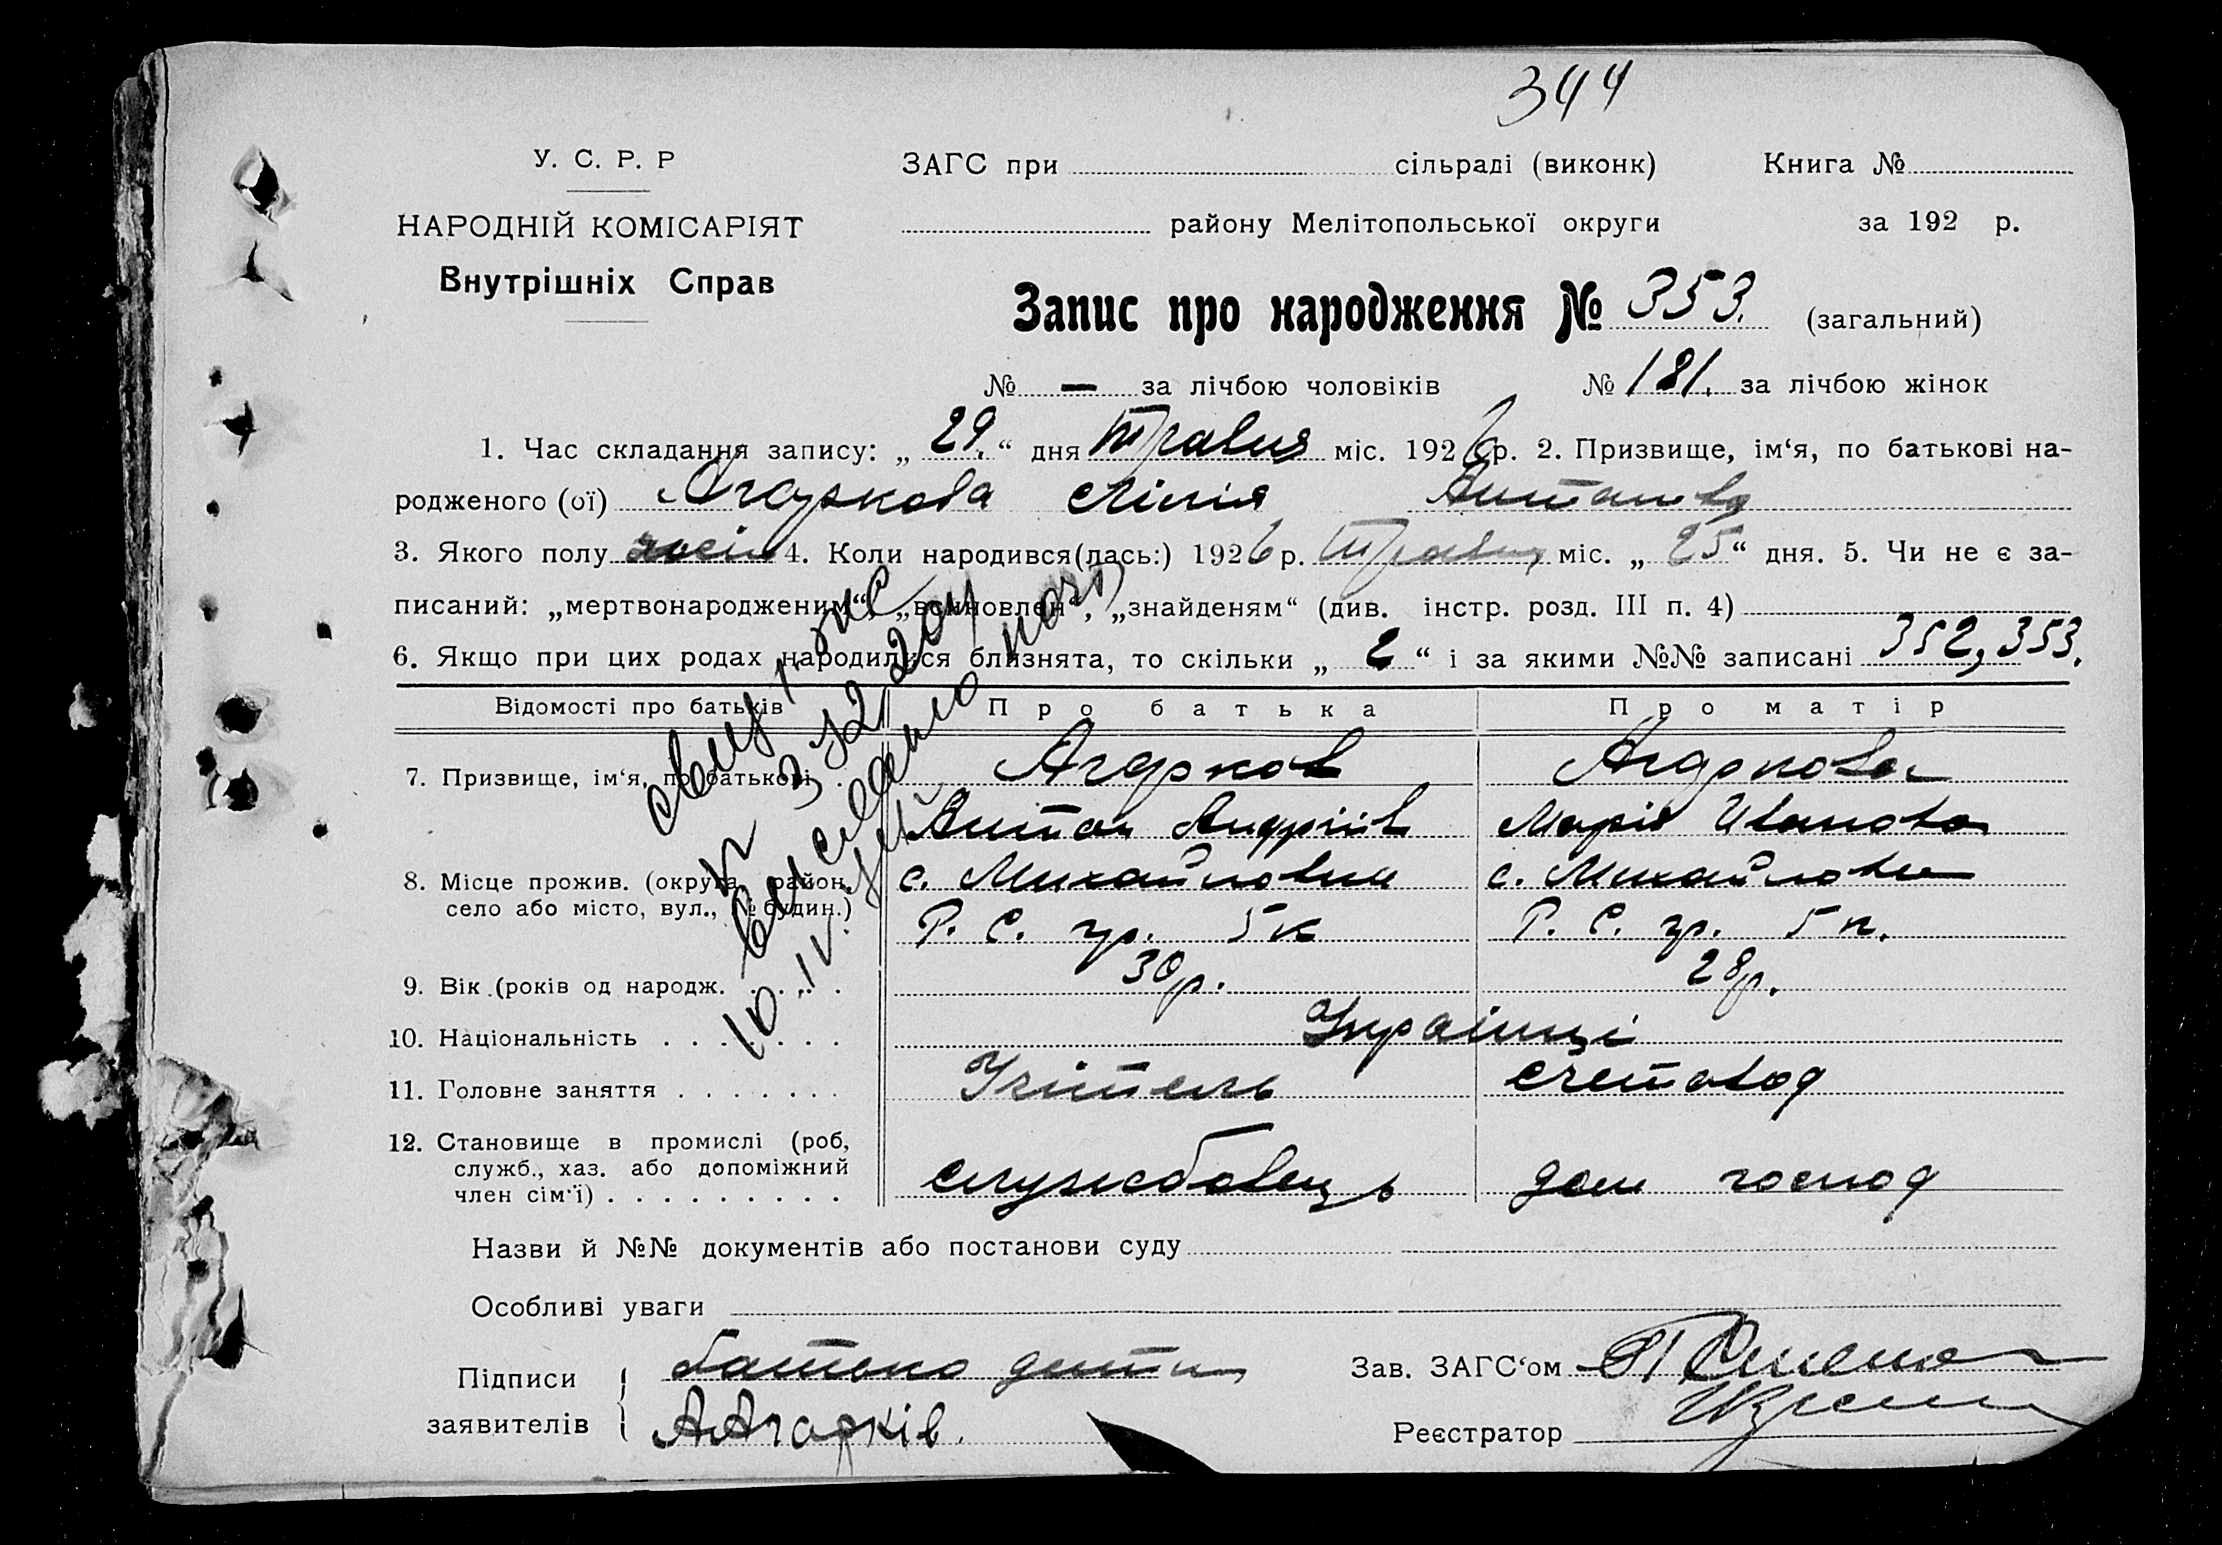 344
У. С. Р. Р
ЗАГС при сільраді (виконк) Книга №
НАРОДНІЙ КОМІСАРІЯТ
району Мелітопольської округи за 192 р.
Внутрішніх Справ
Запис про народження № 353. (загальний)
№ — за лічбою чоловіків № 181. за лічбою жінок
1. Час складання запису: „ 29. “ дня Травня міс. 1926 р. 2. Призвище, ім‘я, по батькові на-
родженого (ої) Агаркова Лілія Антонова
3. Якого полу жосін 4. Коли народився(лась:) 1926 р. Травня міс. „ 25 “ дня. 5. Чи не є за-
писаний: „мертвонародженим“, „всиновлен“, „знайденям“ (див. інстр. розд. III п. 4)
6. Якщо при цих родах народилися близнята, то скільки „ 2 “ і за якими №№ записані 352, 353.
Відомості про батьків Про батька Про матір
7. Призвище, ім‘я, по батькові Агарков Агаркова
Антон Андріїв Марія Иванова
8. Місце прожив. (округа, район, с. Михайловка с. Михайловка
село або місто, вул., № будин.) Р. С. гр. 5 к Р. С. гр. 5 к.
9. Вік (років од народж. 30 р. 28 р.
10. Національність Українці
11. Головне заняття Учітель счетовод
12. Становище в промислі (роб,
служб., хаз. або допоміжний службовець дом господ
член сім‘ї)
Назви й №№ документів або постанови суду
Особливі уваги
Підписи батько дитини Зав. ЗАГС‘ом
заявителів ААгарків. Реєстратор
10. IV.